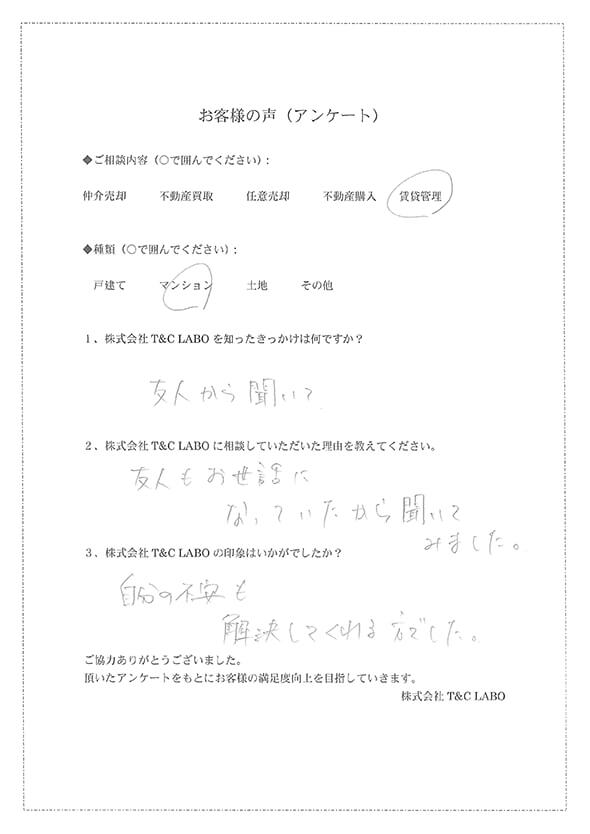 お客様の声（アンケート）
◆ご相談内容（○で囲んでください）：
仲介売却　不動産買取　任意売却　不動産購入　賃貸管理
◆種類（○で囲んでください）：
戸建て　マンション　土地　その他
1、株式会社 T&C LABO を知ったきっかけは何ですか？
友人から聞いて
2、株式会社 T&C LABO に相談していただいた理由を教えてください。
友人もお世話に
なっていたから聞いて
みました。
3、株式会社 T&C LABO の印象はいかがでしたか？
自分の不安も
解決してくれる方でした。
ご協力ありがとうございました。
頂いたアンケートをもとにお客様の満足度向上を目指していきます。
株式会社 T&C LABO